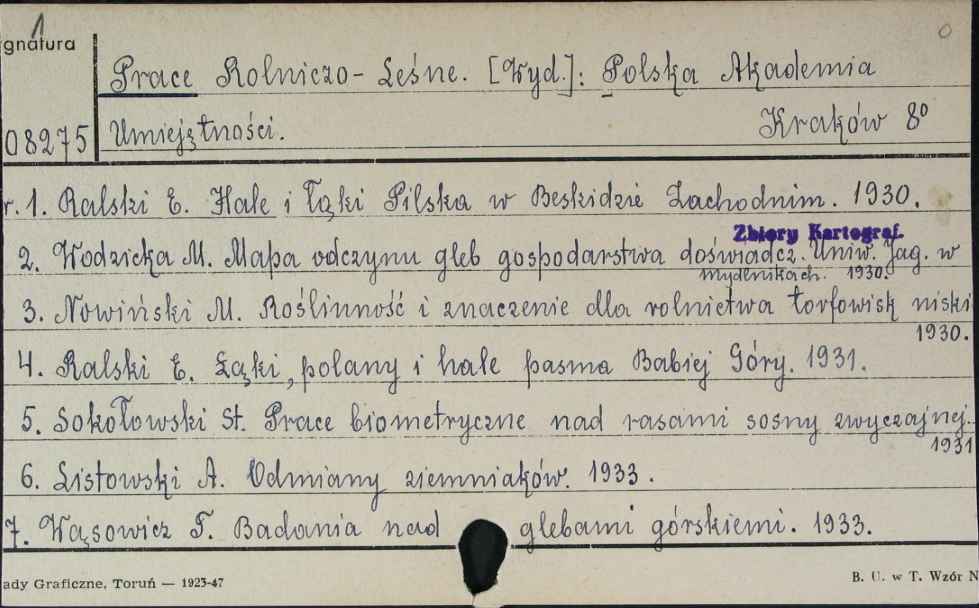 1
gnatura
0
Prace Rolniczo-Leśne. [Wyd.]: Polska Akademia
08275
Umiejętności. Kraków 8º
r. 1. Ralski E. Hale i łąki Pilska w Beskidzie Zachodnim. 1930.
Zbiory Kartograf.
2. Wodzicka M. Mapa odczynu gleb gospodarstwa doświadcz. Uniw. Jag. w
Mydlnikach. 1930.
3. Nowiński M. Roślinność i znaczenie dla rolnictwa torfowisk niski
1930.
4. Ralski E. Łąki, polany i hale pasma Babiej Góry. 1931.
5. Sokołowski St. Prace biometryczne nad rasami sosny zwyczajnej.
1931
6. Listowski A. Odmiany ziemniaków. 1933.
7. Wąsowicz T. Badania nad glebami górskiemi. 1933.
ady Graficzne, Toruń — 1923-47
B. U. w T. Wzór N